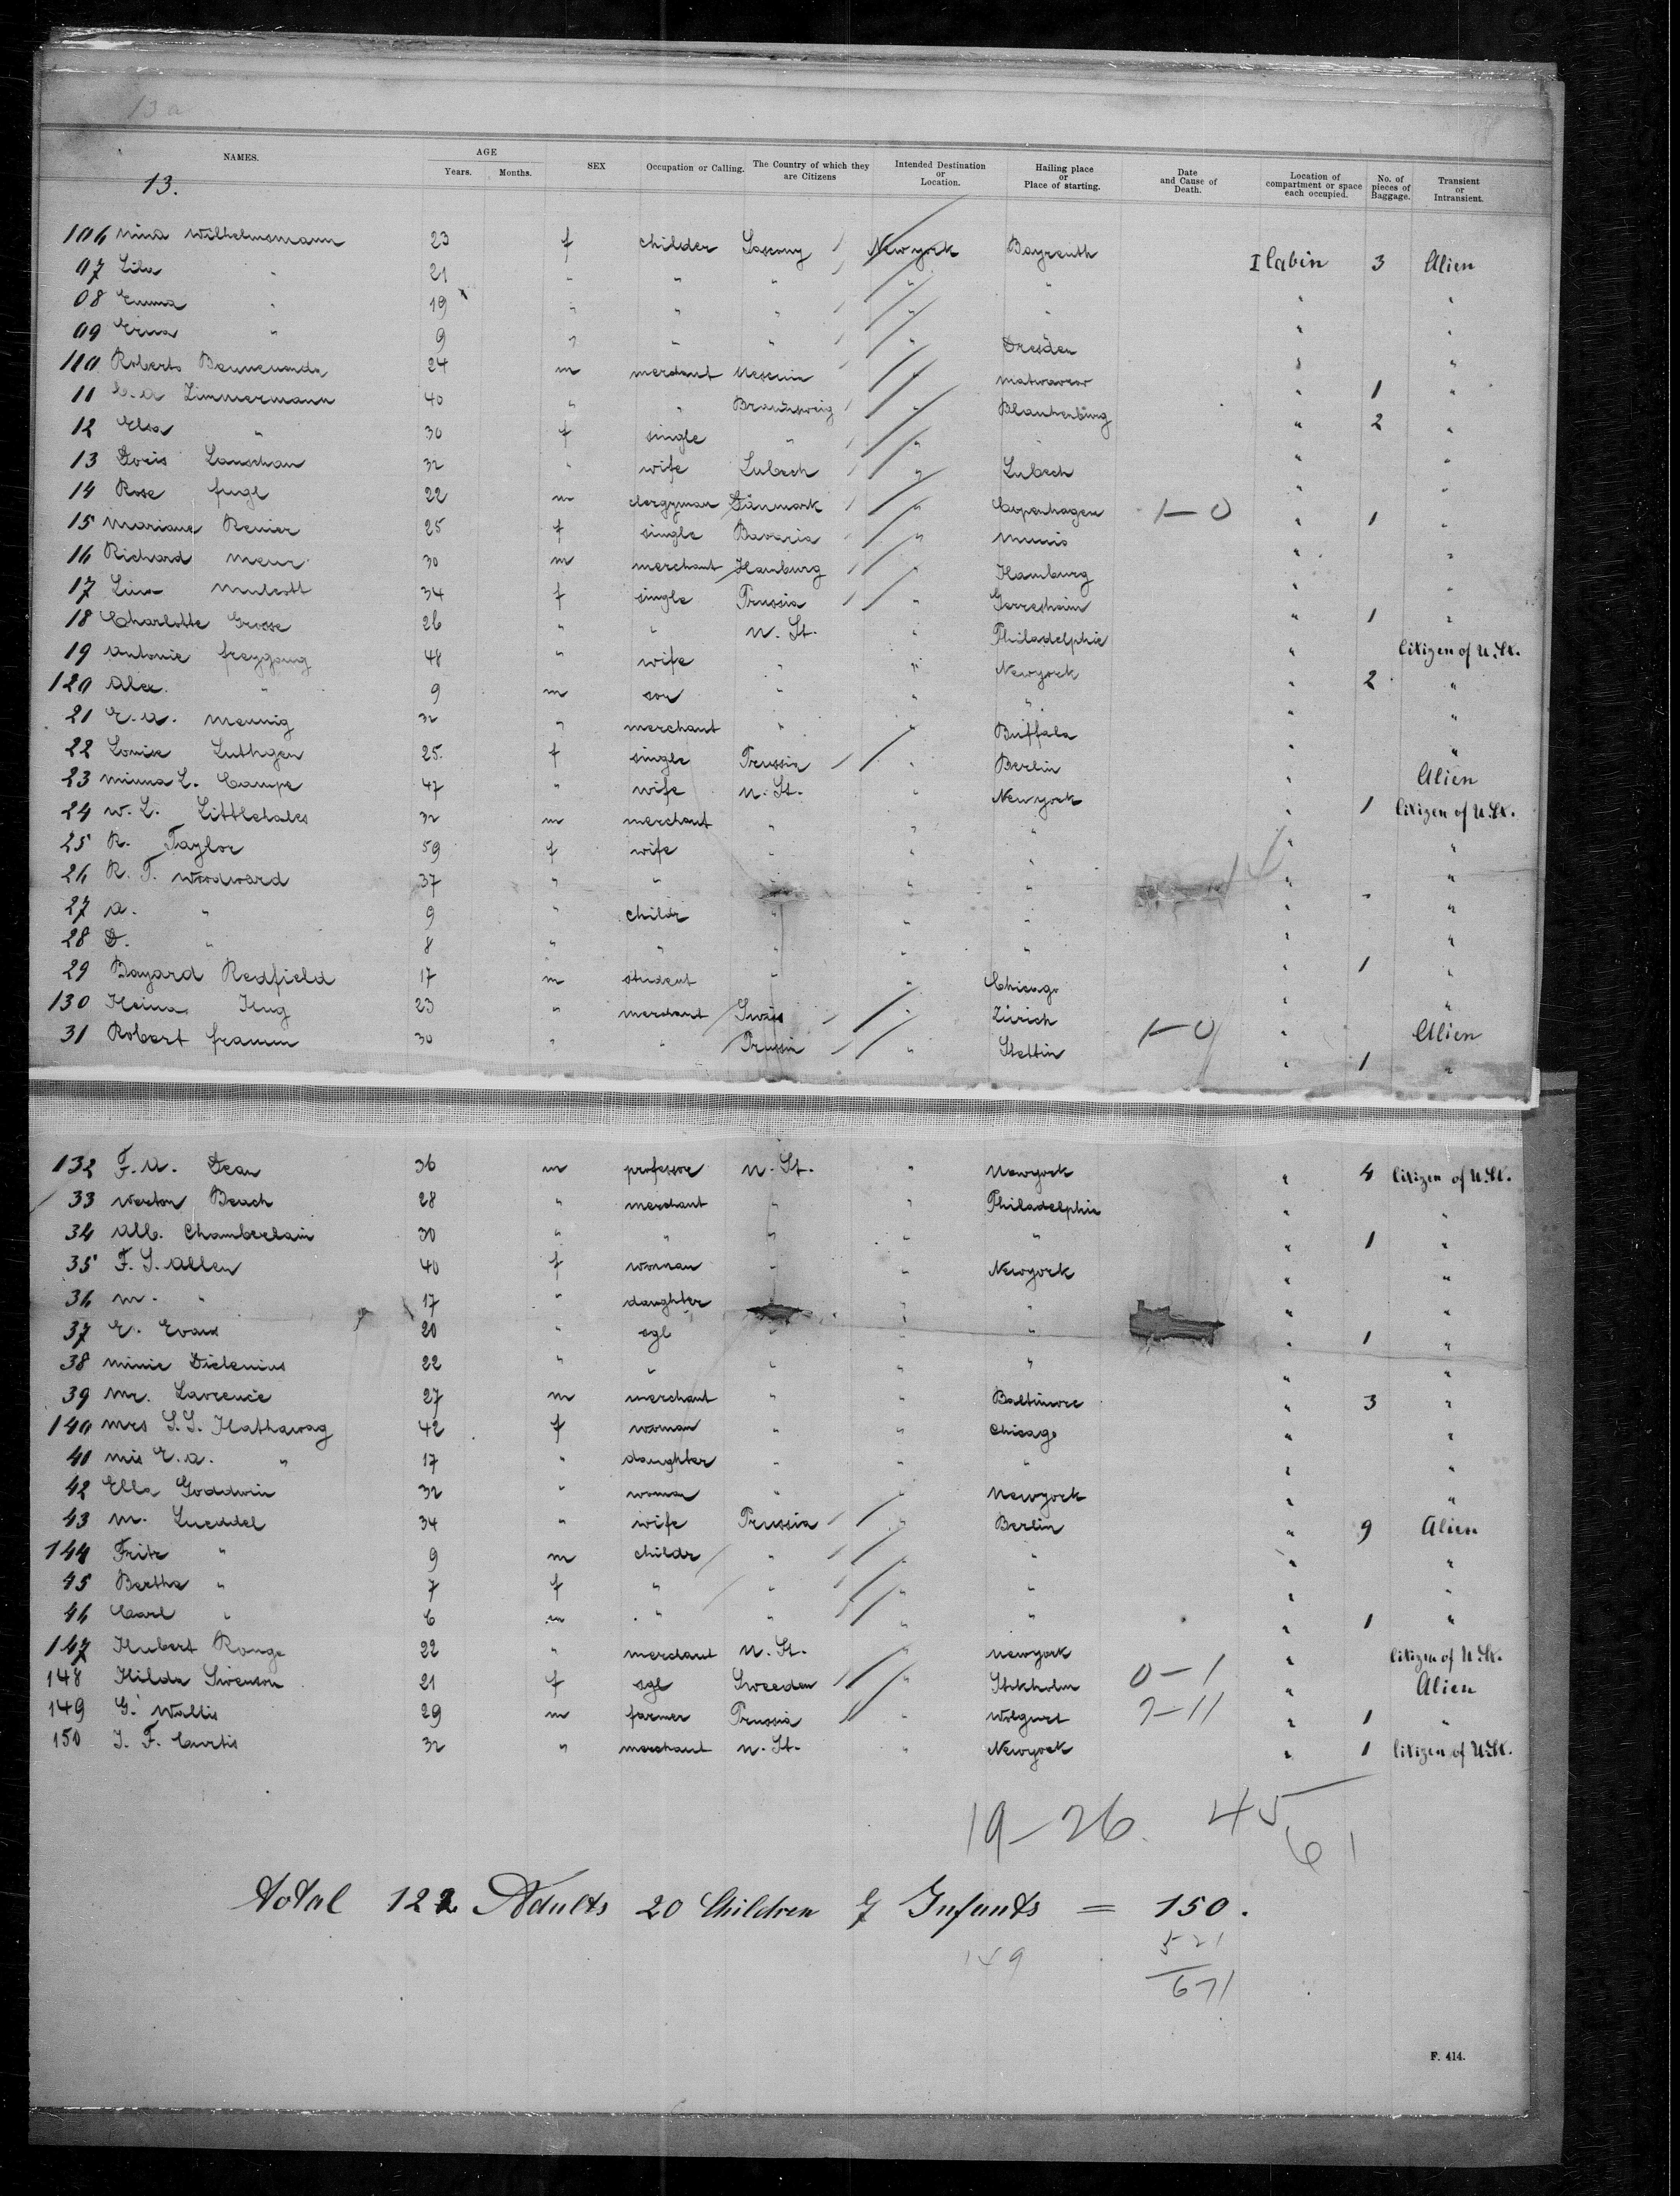 13a
NAMES. AGE Years. Months. SEX Occupation or Calling. The Country of which they are Citizens Intended Destination or Location. Hailing place or Place of starting. Date and Cause of Death. Location of compartment or space each occupied. No. of pieces of Baggage. Transient or Intransient.
13.
106 Nina Wilhelmsmann 23 f childer Saxony Newyork Bayreuth I Cabin 3 Alien
07 Lila " 21 " " " " " " "
08 Emma " 19 " " " " " " "
09 Erna " 9 " " " " Dresden " "
110 Roberto 24 m merchant " " 1 "
11 Zimmermann 40 " " Braunsweig " Blankenburg " 2 "
12 Elsa " 30 f single " " " " "
13 Doris Lanschau 32 " wife Lubech " Lubech " "
14 Rose fugl 22 m clergyman Dänmark " Copenhagen 1-0 " 1 "
15 Mariana Renier 25 f single Bavaria " " "
16 Richard Meur 30 m merchant Hamburg " Hamburg " "
17 Lina 34 f single Prussia " Gerresheim " 1 "
18 Charlotte Grosse 26 " " U. St. " Philadelphie " Citizen of U. St.
19 Antonie freygang 48 " wife " " Newyork " 2 "
120 Alex. " 9 m son " " " " "
21 E. A. Mennig 32 " merchant " " Buffala " "
22 Louise Luthgen 25. f single Prussia " Berlin " Alien
23 Minna L. Campe 47 " wife U. St. " Newyork " 1 Citizen of U. St.
24 W. L. Littlehales 32 m merchant " " " " "
25 R. Taylor 59 f wife " " " " "
26 R. T. Woodward 37 " " " " " " "
27 A. " 9 " childr " " " " "
28 D. " 8 " " " " " " 1 "
29 Bayard Redfield 17 m student " " Chicago " "
130 Heina Hug 23 " merchant Swiss " Zürich 1-0 " Alien
31 Robert framm 30 " " Prussia " Stettin " 1 "
132 F. A. Dean 36 m professor U. St. " Newyork " 4 Citizen of U. St.
33 Weston Beach 28 " merchant " " Philadelphia " "
34 Alb. Chamberlain 30 " " " " " " 1 "
35 F. S. Allen 40 f woman " " Newyork " "
36 M. " 17 " daughter " " " " "
37 E. Evans 20 " sgl " " " " 1 "
38 Minie Dickenius 22 " " " " " " "
39 Mr. Lavrence 27 m merchant " " Baltimore " 3 "
140 Mrs S. S. Hathawag 42 f woman " " Chicago " "
41 Mis E. A. " 17 " daughter " " " " "
42 Ella Goddwin 32 " woman " " Newyork " "
43 M. Lueddel 34 " wife Prussia " Berlin " 9 Alien
144 Fritz " 9 m childr " " " " "
45 Bertha " 7 f " " " " " "
46 Carl " 6 m " " " " " 1 "
147 Hubert Ronge 22 " merchant U. St. " Newyork " Citizen of U. St.
148 Hilda Swenson 21 f sgl Sweeden " Stokholm 0-1 " Alien
149 G. Wallis 29 m farmer Prussia " 7-11 " 1 "
150 J. F. Curtis 32 " merchant U. St. " Newyork " 1 Citizen of U. St.
19-26. 45
61
total 122 Adults 20 Children 7 Infants = 150.
149 521
671
F. 414.